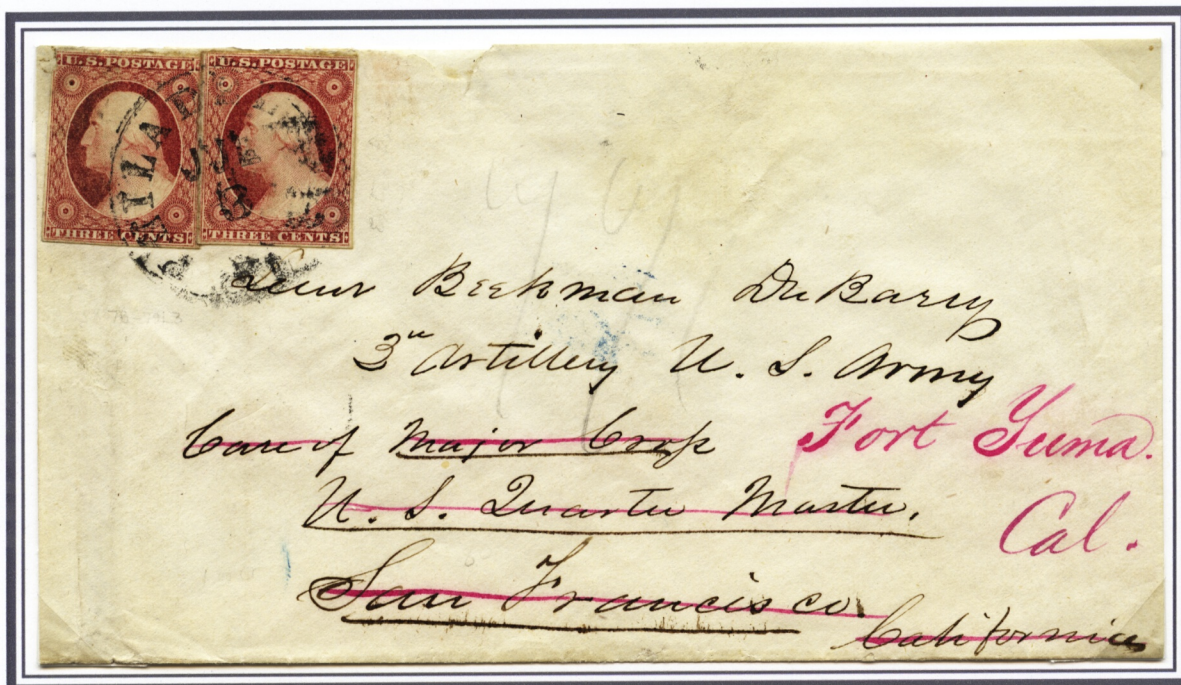 U.S. POSTAGE U.S. POSTAGE
THREE CENTS THREE CENTS
PHILADA
Lieut Beekman DuBarry
3" Artillery U. S. Army
Care of Major Cross
U. S. Quarter Master.
San Francisco
California
Fort Yuma.
Cal.